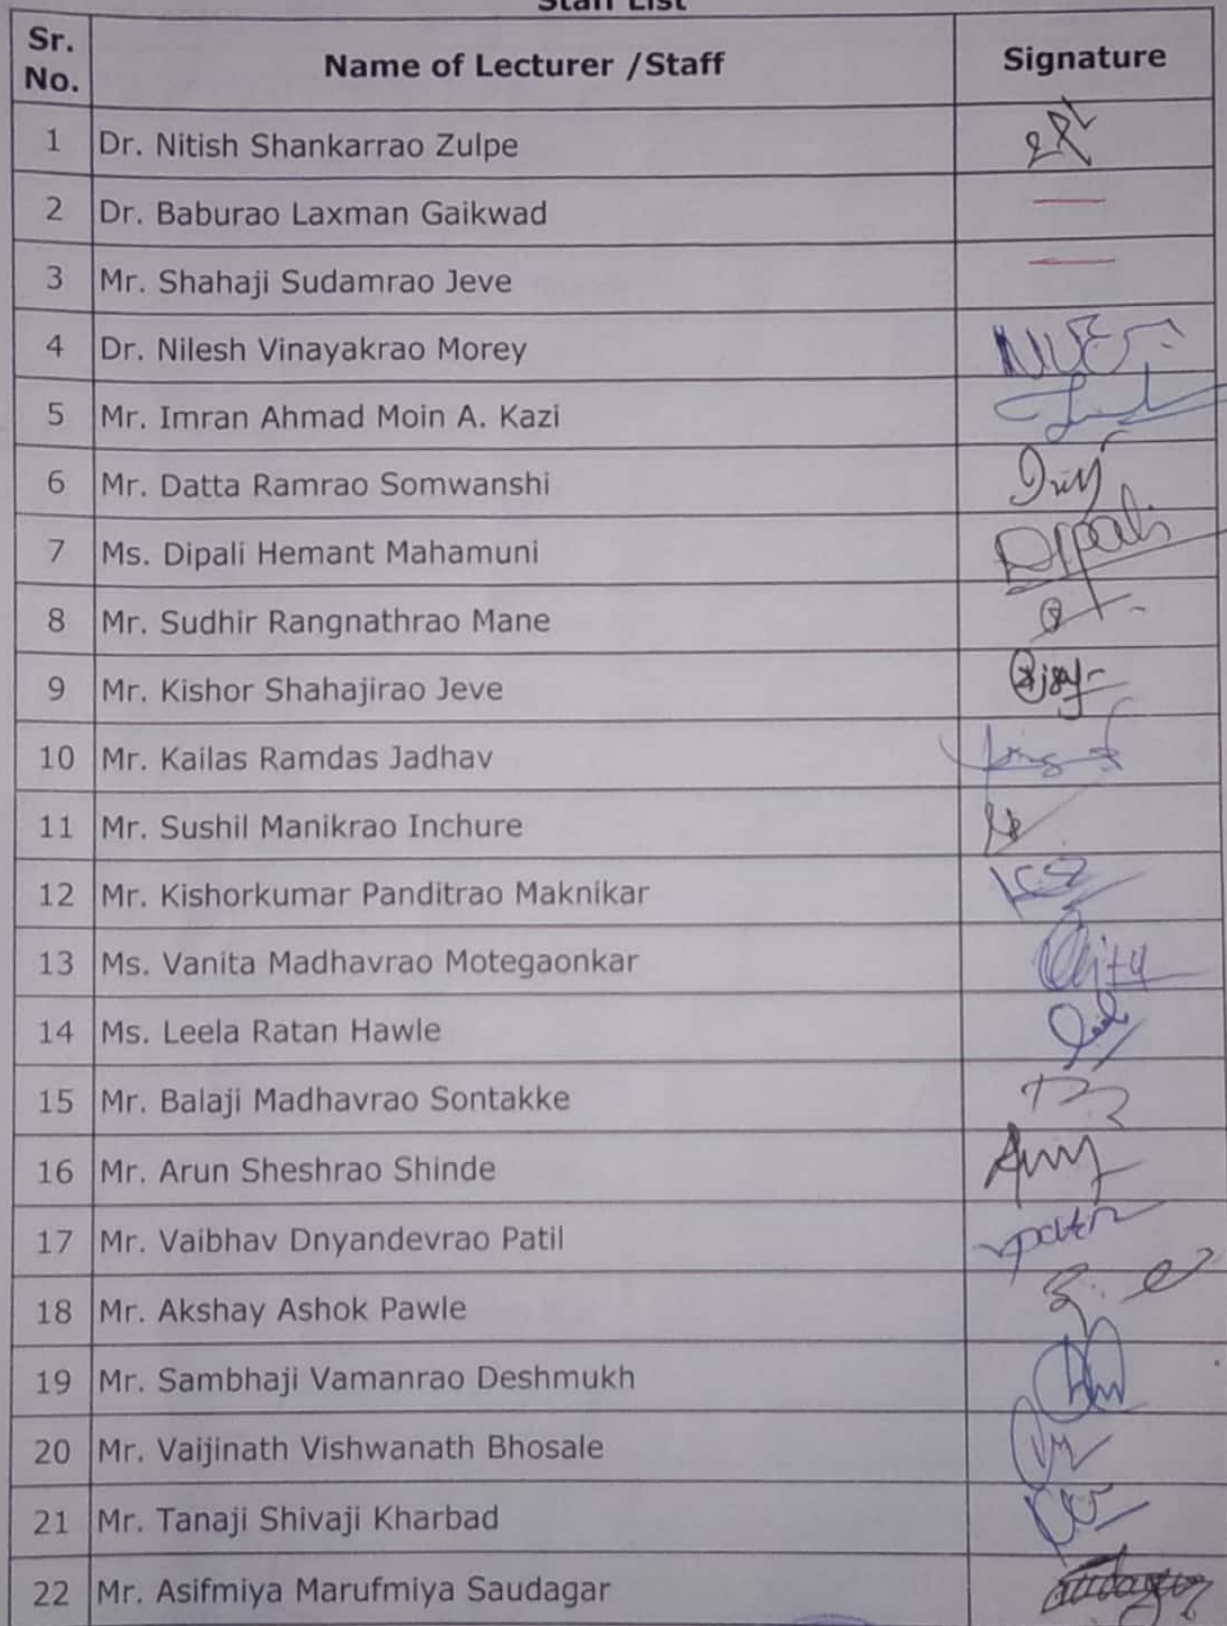 Staff List
Sr. No. Name of Lecturer /Staff Signature
1 Dr. Nitish Shankarrao Zulpe
2 Dr. Baburao Laxman Gaikwad —
3 Mr. Shahaji Sudamrao Jeve —
4 Dr. Nilesh Vinayakrao Morey
5 Mr. Imran Ahmad Moin A. Kazi
6 Mr. Datta Ramrao Somwanshi
7 Ms. Dipali Hemant Mahamuni Dipali
8 Mr. Sudhir Rangnathrao Mane
9 Mr. Kishor Shahajirao Jeve
10 Mr. Kailas Ramdas Jadhav
11 Mr. Sushil Manikrao Inchure
12 Mr. Kishorkumar Panditrao Maknikar
13 Ms. Vanita Madhavrao Motegaonkar
14 Ms. Leela Ratan Hawle
15 Mr. Balaji Madhavrao Sontakke
16 Mr. Arun Sheshrao Shinde
17 Mr. Vaibhav Dnyandevrao Patil
18 Mr. Akshay Ashok Pawle
19 Mr. Sambhaji Vamanrao Deshmukh
20 Mr. Vaijinath Vishwanath Bhosale
21 Mr. Tanaji Shivaji Kharbad
22 Mr. Asifmiya Marufmiya Saudagar